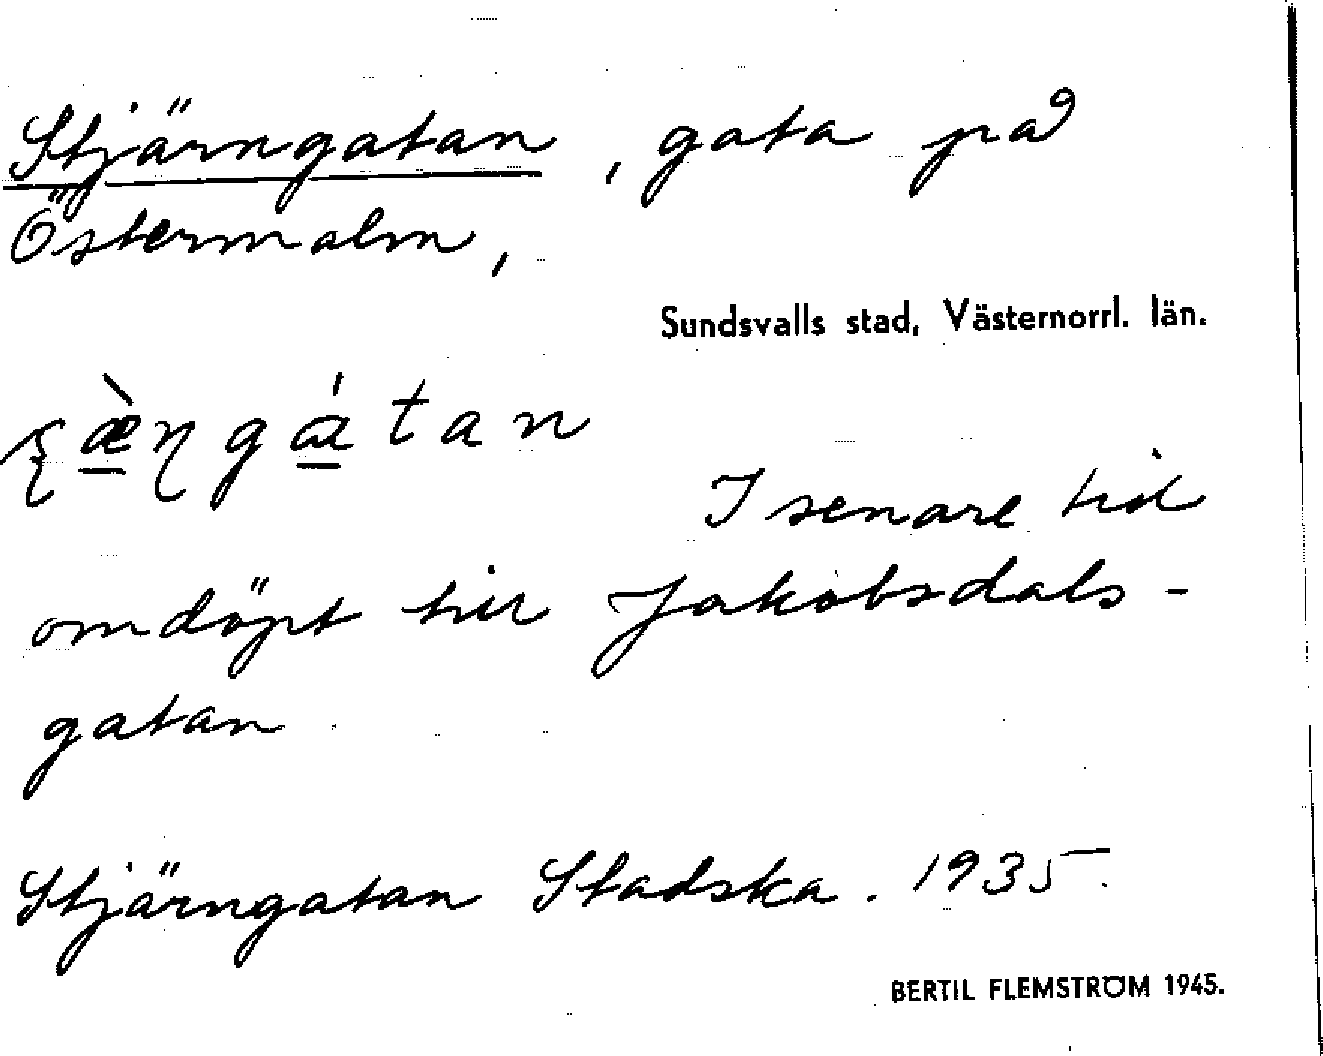 Stjärngatan, gata på
Östermalm,
Sundsvalls stad, Västernorrl. län.
ʂæ̀ɳgátan
I senare tid
omdöpt till Jakobsdals-
gatan
Stjärngatan Stadska. 1935.
BERTIL FLEMSTRÖM 1945.